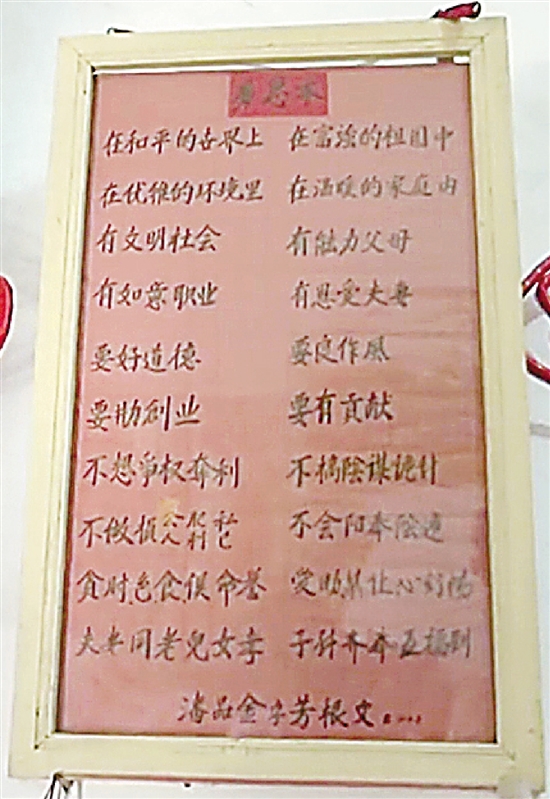 在和平的世界上 在富強的祖国中
在优雅的环境里 在温暖的家庭内
有文明社会 有能力父母
有如意职业 有恩爱夫妻
要好道德 要良作風
要助創业 要有贡献
不想争权夺利 不搞陰谋诡计
不做损公肥私 人利己 不会阳奉陰違
贪财色食俱命誉 爱助
夫妻同老兒女孝 子孙齐 五福到
金 芳根文